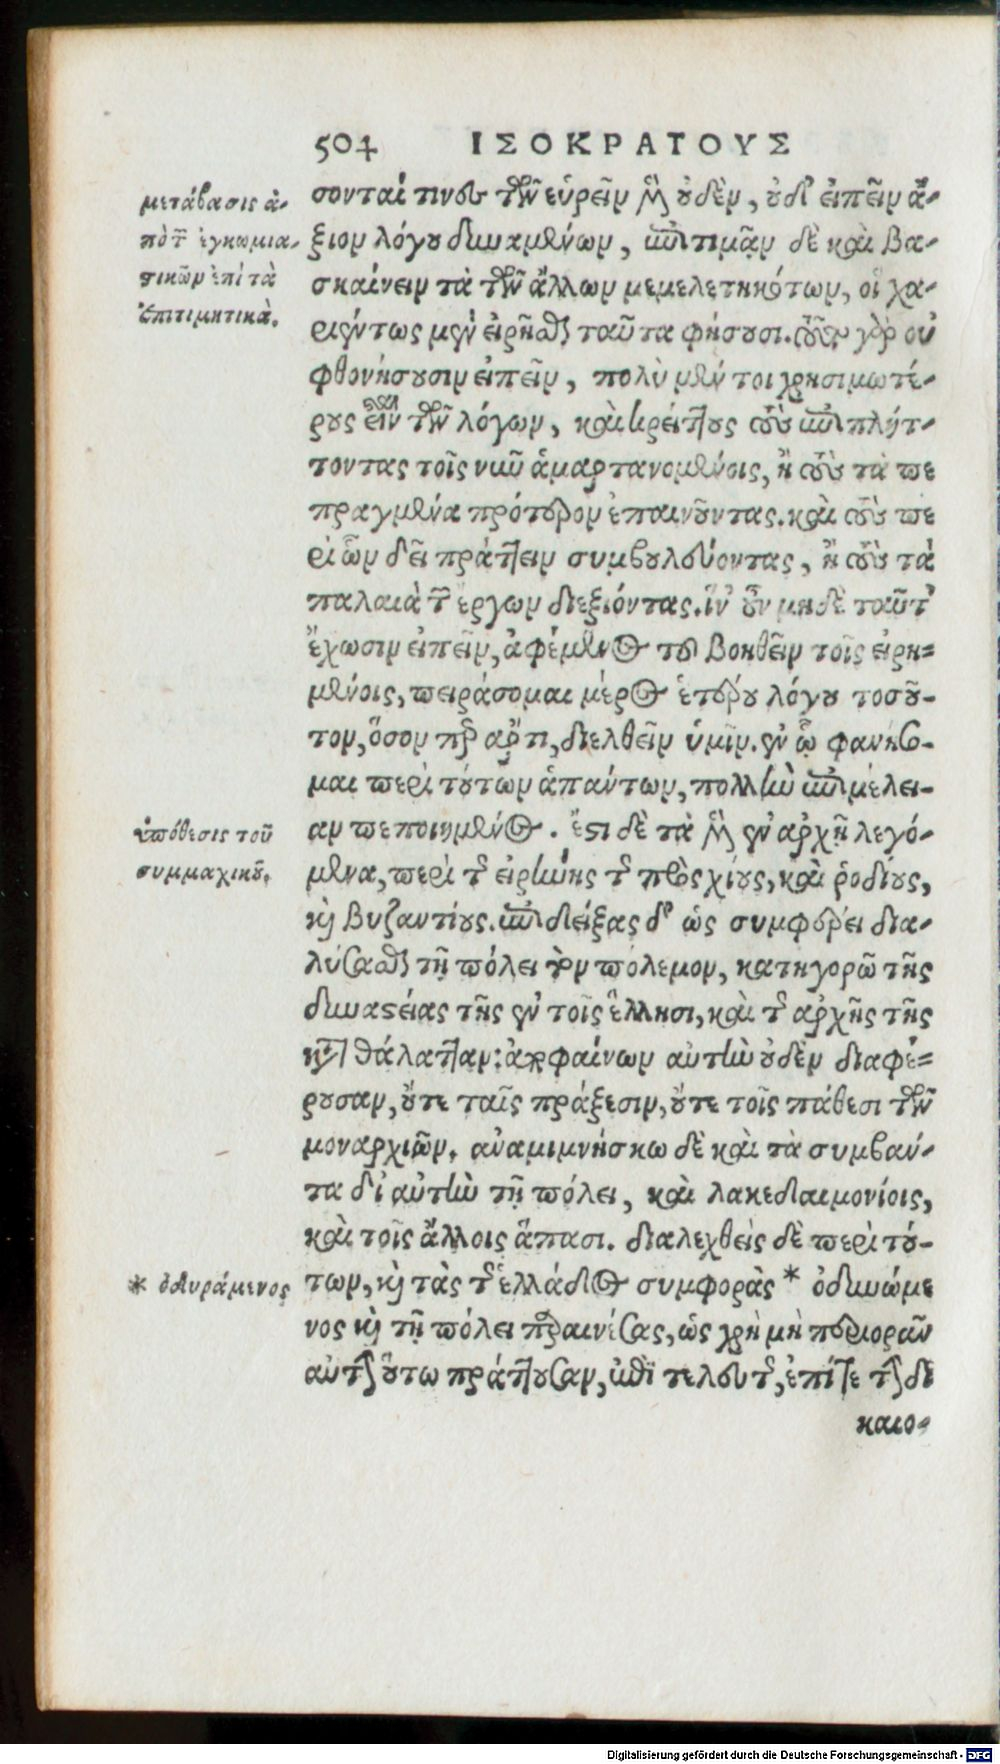 504 ΙΣΟΚΡΑΤΟΥΣ
μετάβασις ἀ-
πὸ τ῀ ἐγκωμια-
στικῶν ἐπὶ τὰ
ἐπιτιμητικὰ.
σονταί τινες τῶν εὑρεῖν μὲν οὐδὲν, οὐδ' εἰπεῖν ἄ-
ξιον λόγου δυναμένων, ἐπιτιμᾷν δὲ καὶ βα-
σκαίνειν τὰ τῶν ἄλλων μεμελετηκότων, οἳ χα-
ριέντως μὲν εἰρῆσθαι ταῦτα φήσουσι. τὸ γὰρ οὐ
φθονήσουσιν εἰπεῖν, πολὺ μέν τοι χρησιμωτέ-
ρους εἶναι τῶν λόγων, καὶ κρείττους τοὺς ἐπιπλήτ-
τοντας τοῖς νῦν ἁμαρτανομένοις, ἢ τοὺς τὰ πε
πραγμένα πρότερον ἐπαινοῦντας. καὶ τοὺς πε
ρὶ ὧν δεῖ πράττειν συμβουλεύοντας, ἢ τοὺς τὰ
παλαιὰ τῶν ἔργων διεξιόντας. ἵν' οὖν μηδὲ ταῦτ'
ἔχωσιν εἰπεῖν, ἀφέμενος τοῦ βοηθεῖν τοῖς εἰρη-
μένοις, πειράσομαι μέρος ἑτέρου λόγου τοσοῦ-
τον, ὅσον περ ἄρτι, διελθεῖν ὑμῖν. ἐν ᾧ φανήσο-
μαι περὶ τούτων ἁπάντων, πολλὴν ἐπιμέλει-
αν πεποιημένος. ἔστι δὲ τὰ μὲν ἐν ἀρχῇ λεγό-
ὑπόθεσις τοῦ
συμμαχικοῦ.
μενα, περὶ τῆς εἰρήνης τῆς πρὸς χίους, καὶ ῥοδίους,
καὶ βυζαντίους. ἐπιδείξας δ' ὡς συμφέρει δια-
λύσασθαι τῇ πόλει τὸν πόλεμον, κατηγορῶ τῆς
δυναστείας τῆς ἐν τοῖς ἕλλησι, καὶ τῆς ἀρχῆς τῆς
κατὰ θάλατταν: ἀποφαίνων αὐτὴν οὐδὲν διαφέ-
ρουσαν, οὔτε ταῖς πράξεσιν, οὔτε τοῖς πάθεσι τῶν
μοναρχιῶν. ἀναμιμνήσκω δὲ καὶ τὰ συμβάν-
τα δι' αὐτὴν τῇ πόλει, καὶ λακεδαιμονίοις,
καὶ τοῖς ἄλλοις ἅπασι. διαλεχθεὶς δὲ περὶ τού-
των, καὶ τὰς τῆς ἑλλάδος συμφορὰς * ὀδυνώμε
* ὀδυράμενος
νος καὶ τῇ πόλει παραινέσας, ὡς χρὴ μὴ περιορᾶν
αὑτὴν οὕτω πράττουσαν, ἐπὶ τελευτῆς, ἐπί τε τὴν δι
καιο-
Digitalisierung gefördert durch die Deutsche Forschungsgemeinschaft - DFG